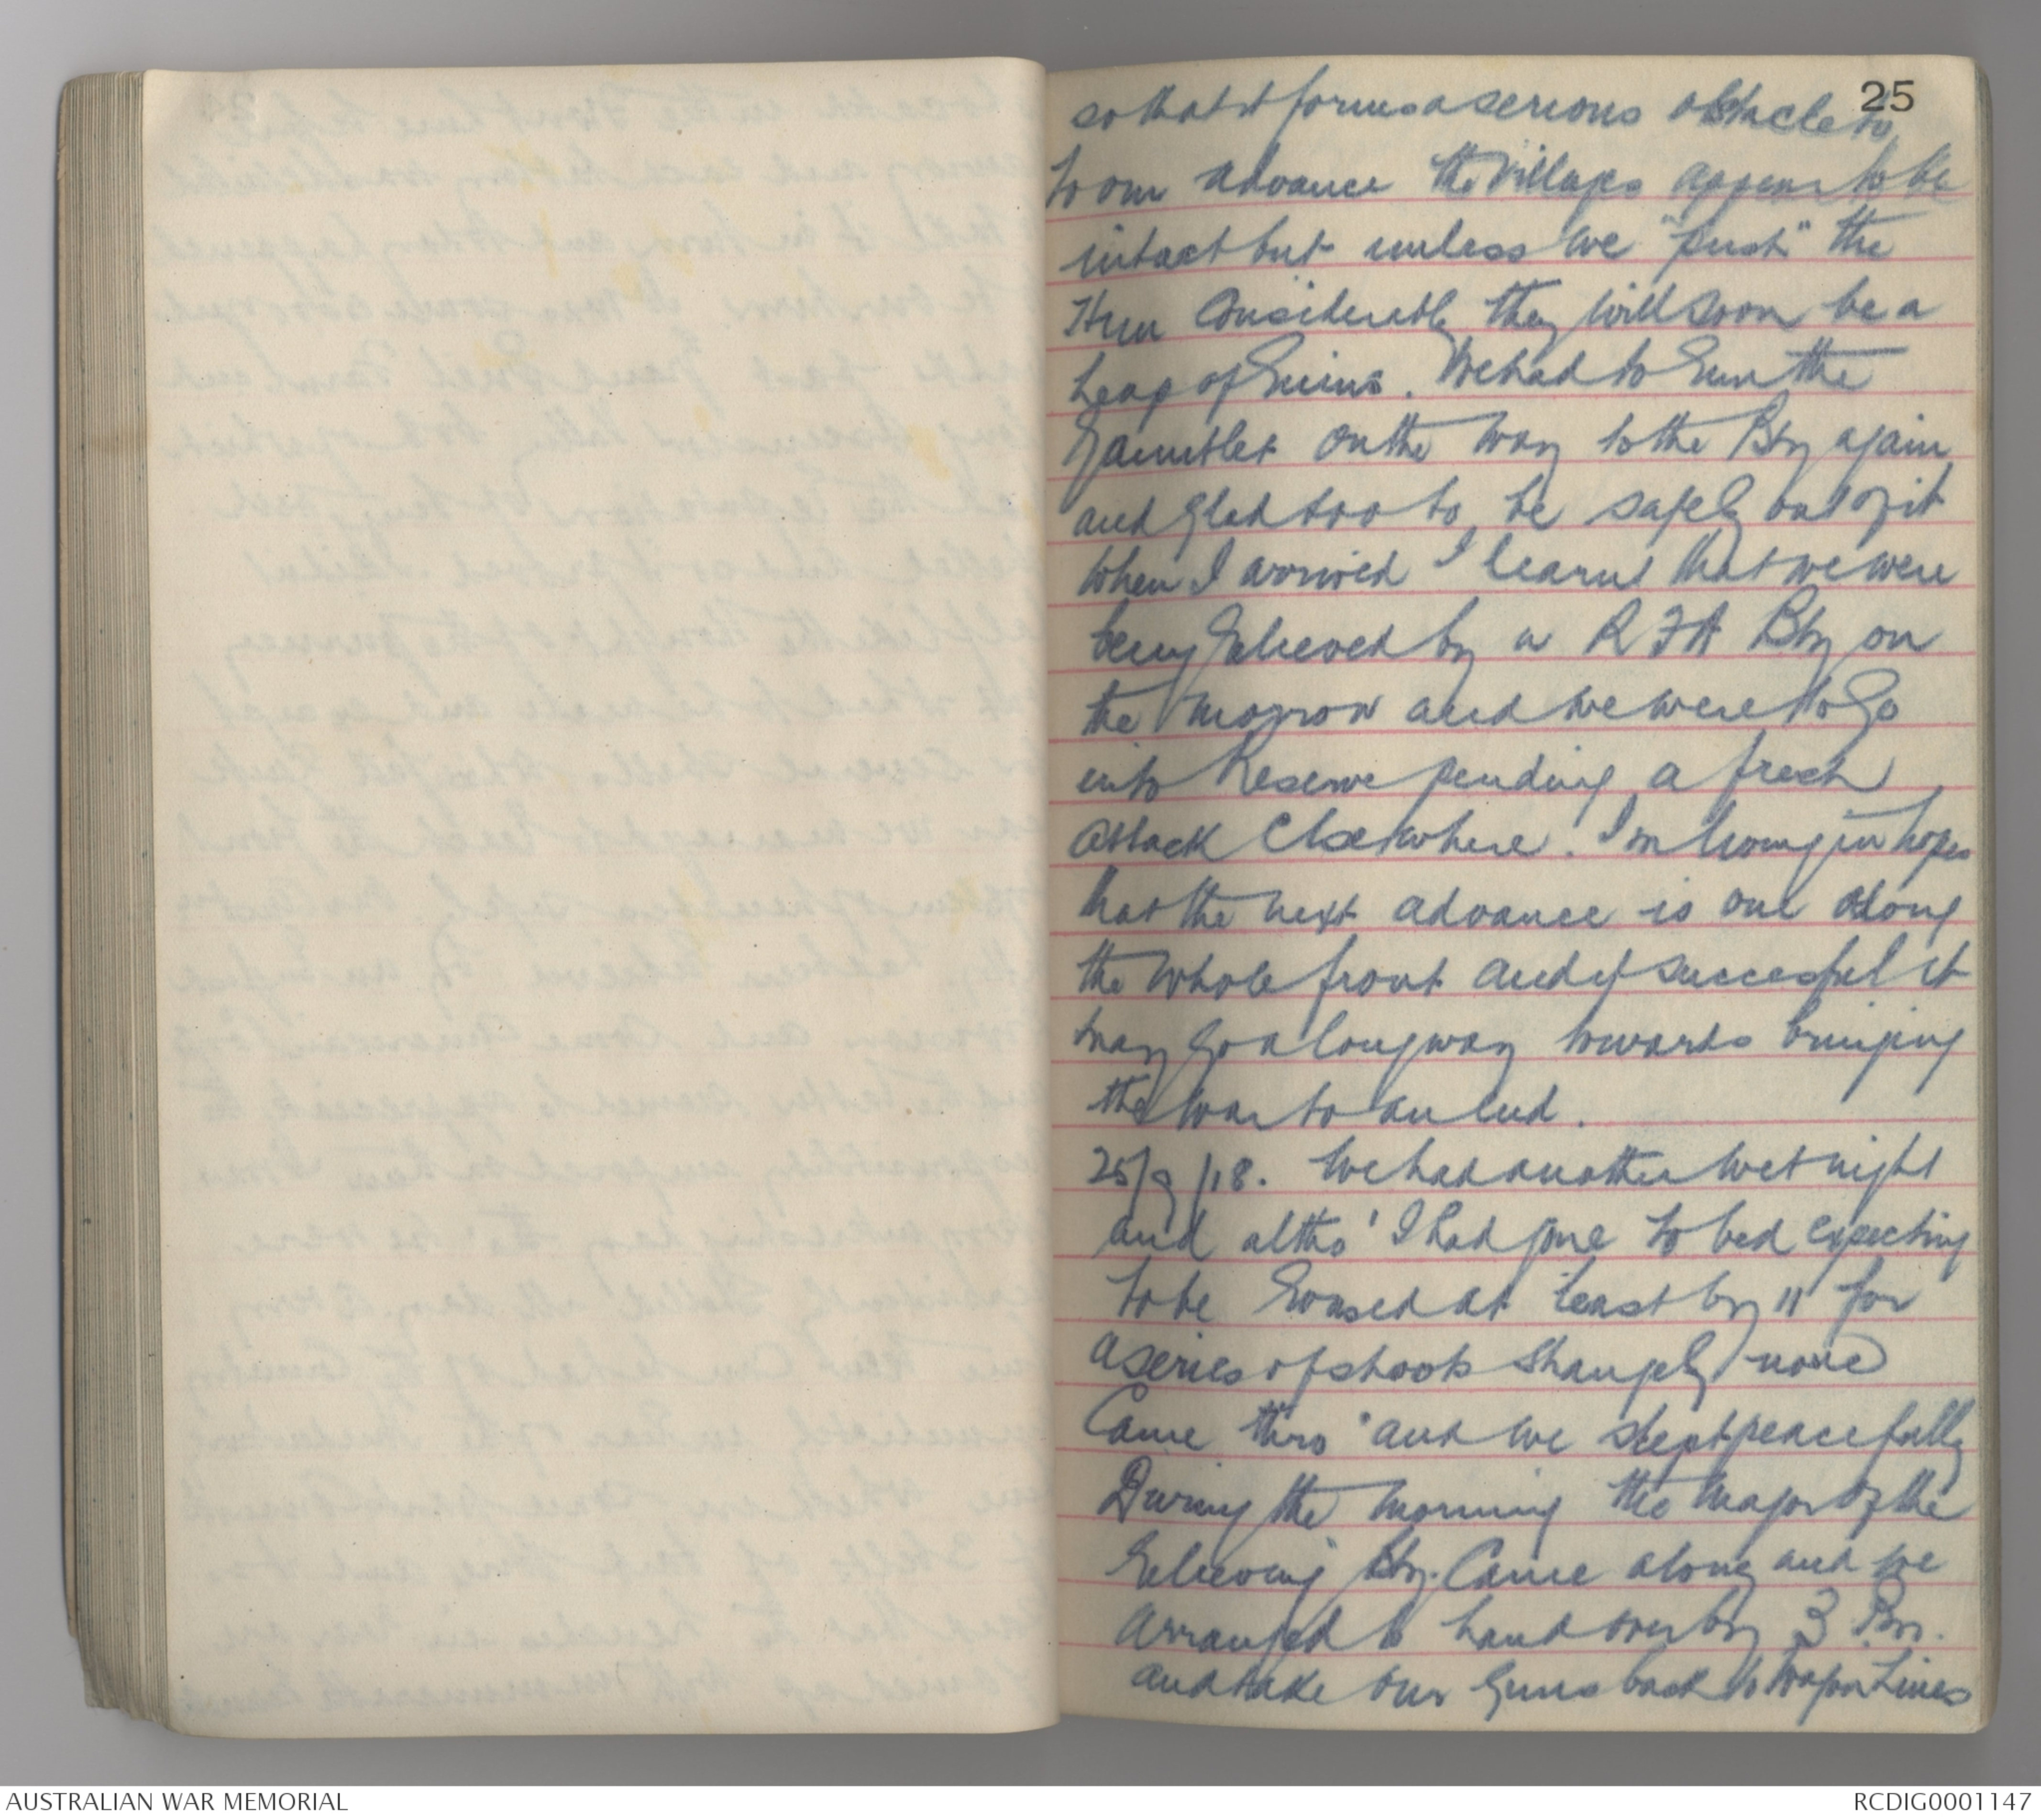 25
so that it forms a serious obstacle to
to our advance the villages appear to be
intact but unless we "push" the
Hun considerably they will soon be a
heap of ruins. We had to run the
Gauntlet on the way to the Bty again
and glad too to be safely out of it
When I arrived I learnt that we were
being relieved by a RFA Bty on
the morrow and we were to go
into Reserve pending a fresh
attack elsewhere. I'm living in hopes
that the next advance is one along
the whole front and if successful it
may go a long way towards bringing
the war to an end.
25/9/18. We had another wet night
and altho' I had gone to bed expecting
to be roused at least by 11 for
a series of shoots strangely none
came thro' and we slept peacefully
During the morning the Major of the
relieving Bty. came along and we
arranged to hand over by 3 Pm.
and take our guns back to Wagon Lines
AUSTRALIAN WAR MEMORIAL
RCDIG0001147